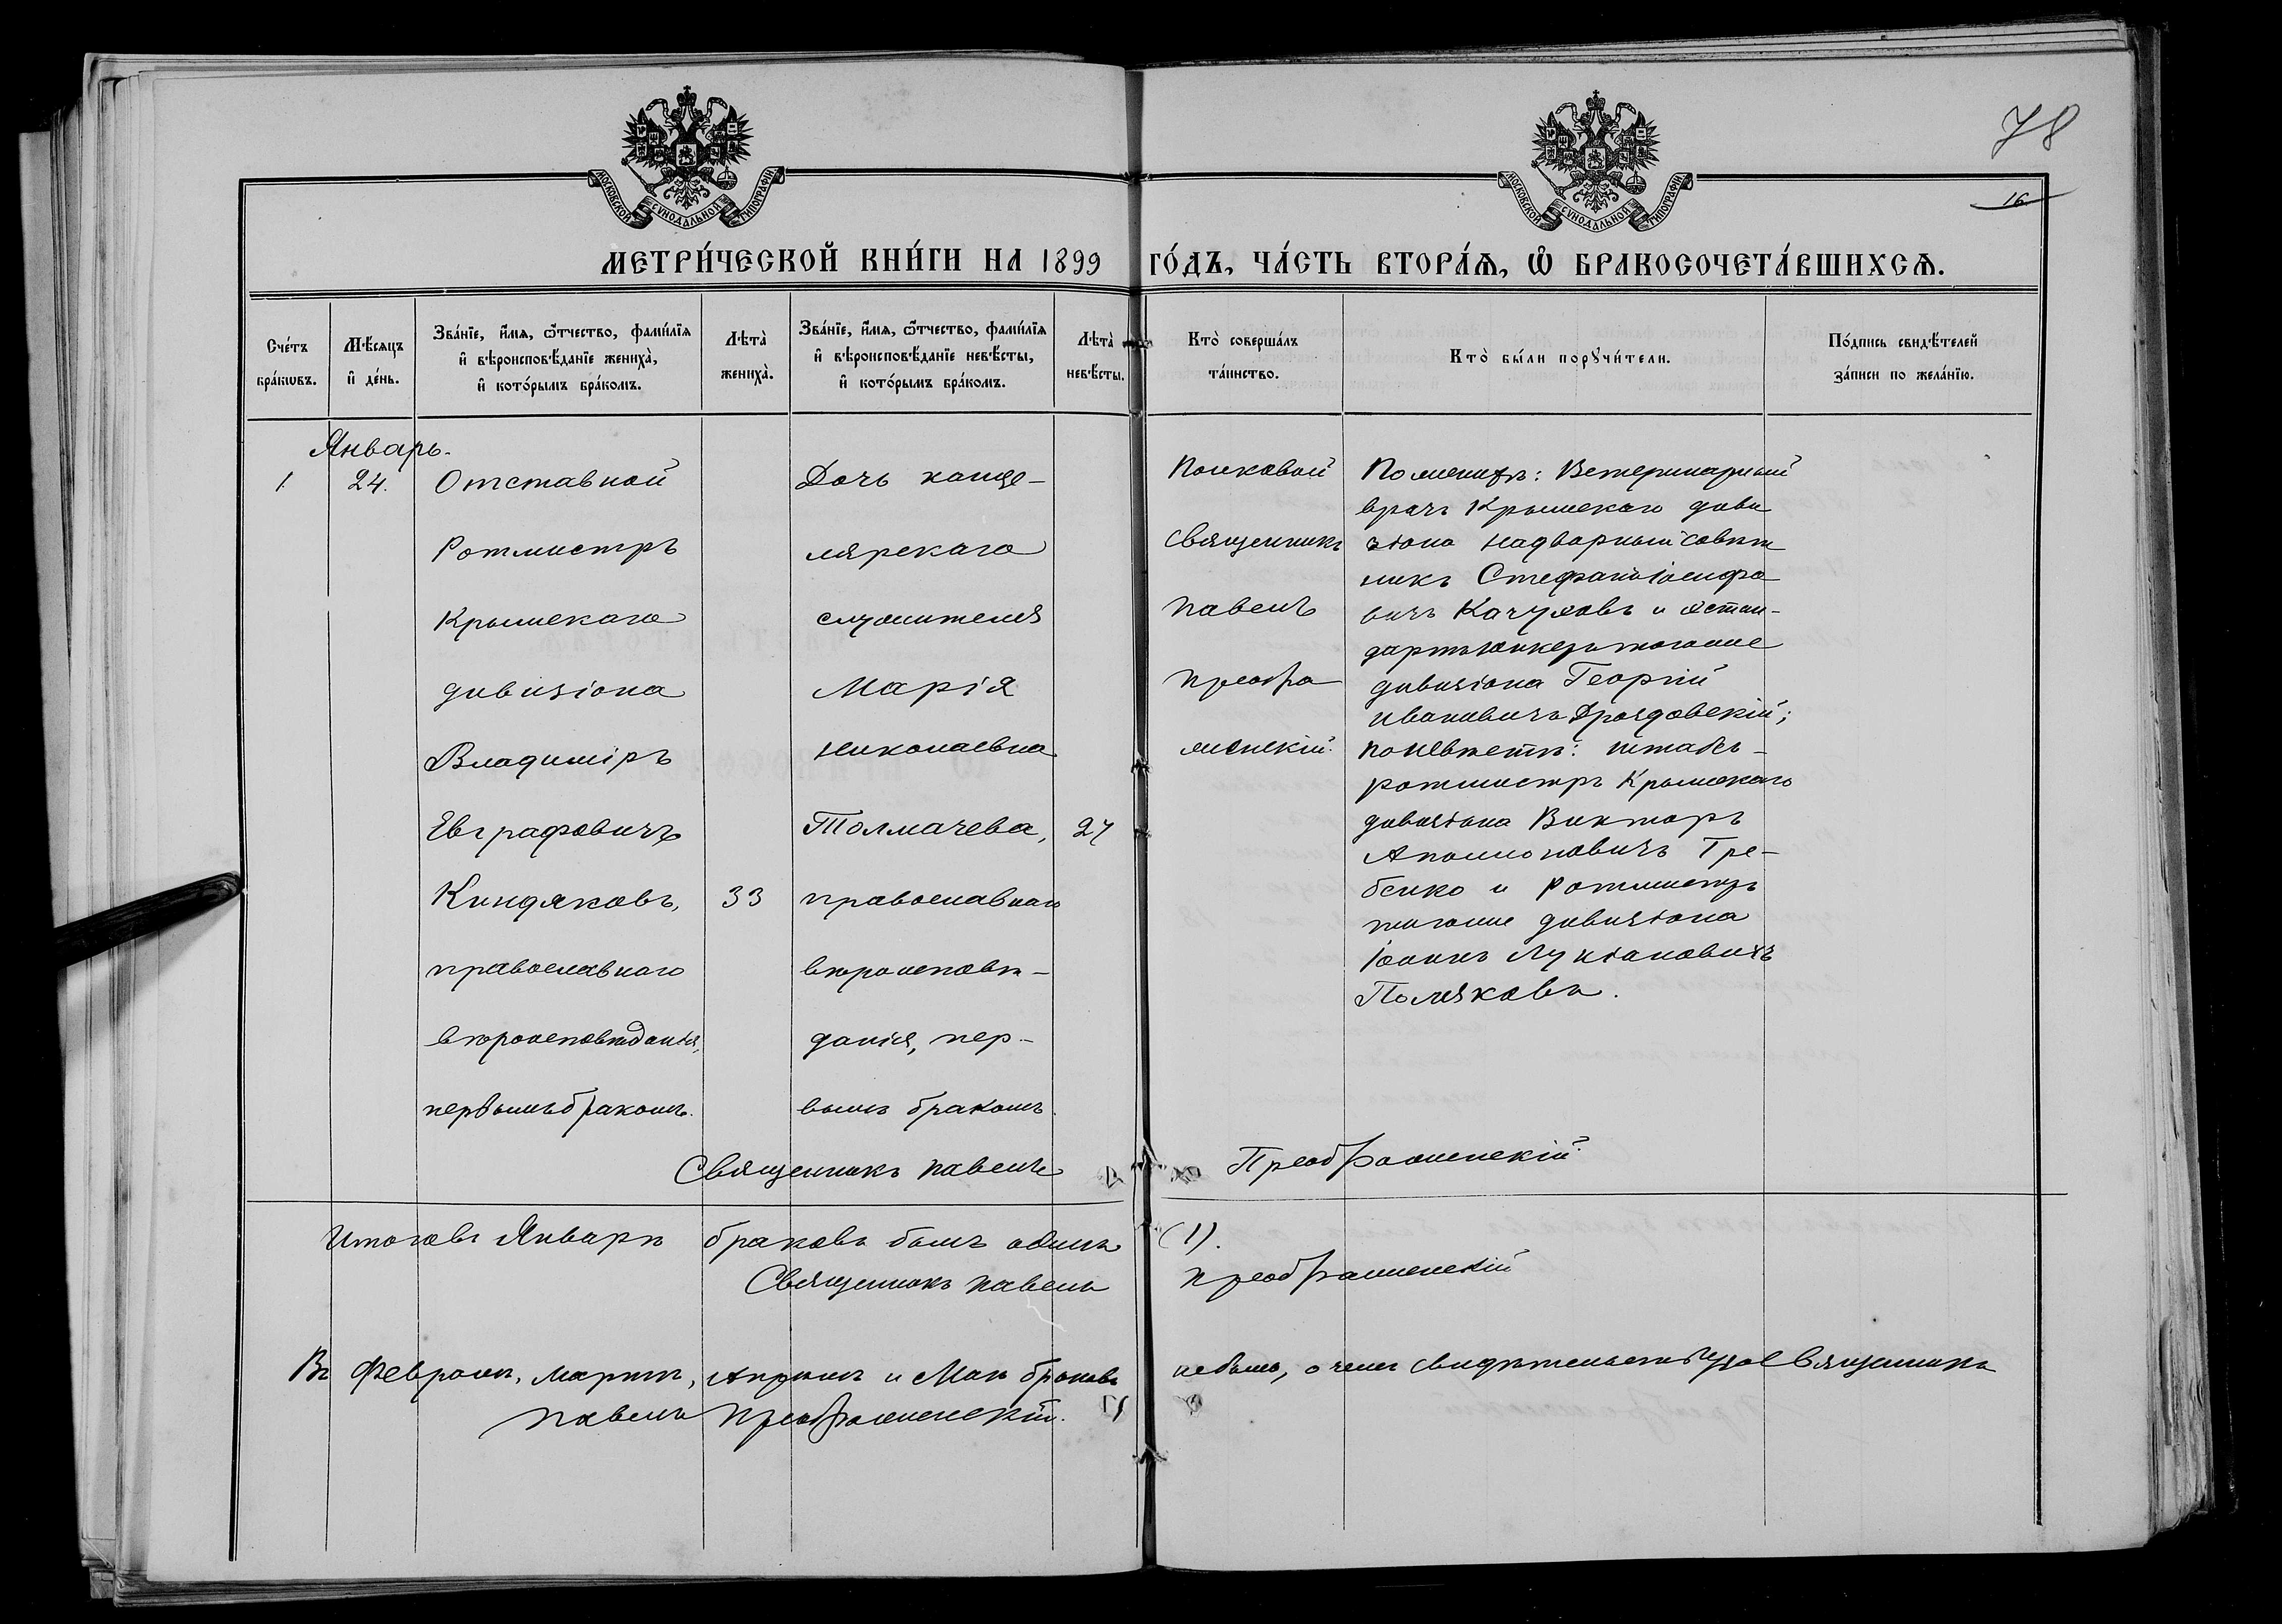 78
16
МОСКОВСКОЙ СѴНОДАЛЬНОЙ ТИПОГРАФІИ
МОСКОВСКОЙ СѴНОДАЛЬНОЙ ТИПОГРАФІИ
МЕТРИ́ЧЕСКОЙ КНИ́ГИ НА 1899 ГО́ДЪ, ЧА́СТЬ ВТОРА́Ѧ, Ѽ БРАКОСОЧЕТА́ВШИХСѦ.
Сче́тъ
бра́кѡвъ.
Мѣ́сяцъ
и҆ де́нь.
Зва́нїе, и҆́мѧ, ѻ҆́тчество, фами́лїѧ
и҆ вѣроисповѣ́данїе жениха̀,
и҆ кото́рымъ бра́комъ.
Лѣта̀
жениха̀.
Зва́нїе, и҆́мѧ, ѻ҆́тчество, фами́лїѧ
и҆ вѣроисповѣ́данїе невѣ́сты,
и҆ кото́рымъ бра́комъ.
Лѣта̀
невѣ́сты.
Кто̀ соверша́лъ
та́инство.
Кто̀ бы́ли порꙋчи́тели.
По́дпись свидѣ́телей
за́писи по жела́нїю.
Январь.
1.
24.
Отставной
Ротмистръ
Крымскаго
дивизіона
Владиміръ
Евграфовичъ
Киндяковъ,
православнаго
вѣроисповѣданія,
первымъ бракомъ.
33
Дочь канце-
лярскаго
служителя
Марія
Николаевна
Толмачева,
православнаго
вѣроисповѣ-
данія, пер-
вымъ бракомъ.
27
Полковой
Священникъ
Павелъ
Преобра
женскій.
По женихѣ: Ветеринарный
врачъ Крымскаго диви
зіона надворный совѣт
никъ Стефанъ Іосифо
вичъ Качуловъ и эстан-
дартъ юнкеръ того же
дивизіона Георгій
Ивановичъ Дроздовскій;
по невѣстѣ: штабсъ-
ротмистръ Крымскаго
дивизіона Викторъ
Аполлоновичъ Гре-
бенко и Ротмистръ
того же дивизіона
Іоаннъ Лукіановичъ
Поляковъ.
Священникъ Павелъ Преображенскій.
Итого въ Январѣ браковъ былъ одинъ (1).
Священникъ Павелъ Преображенскій
Въ Февралѣ, Мартѣ, Апрѣлѣ и Маѣ браковъ не было, о чемъ свидѣтельствую Священникъ
Павелъ Преображенскій.